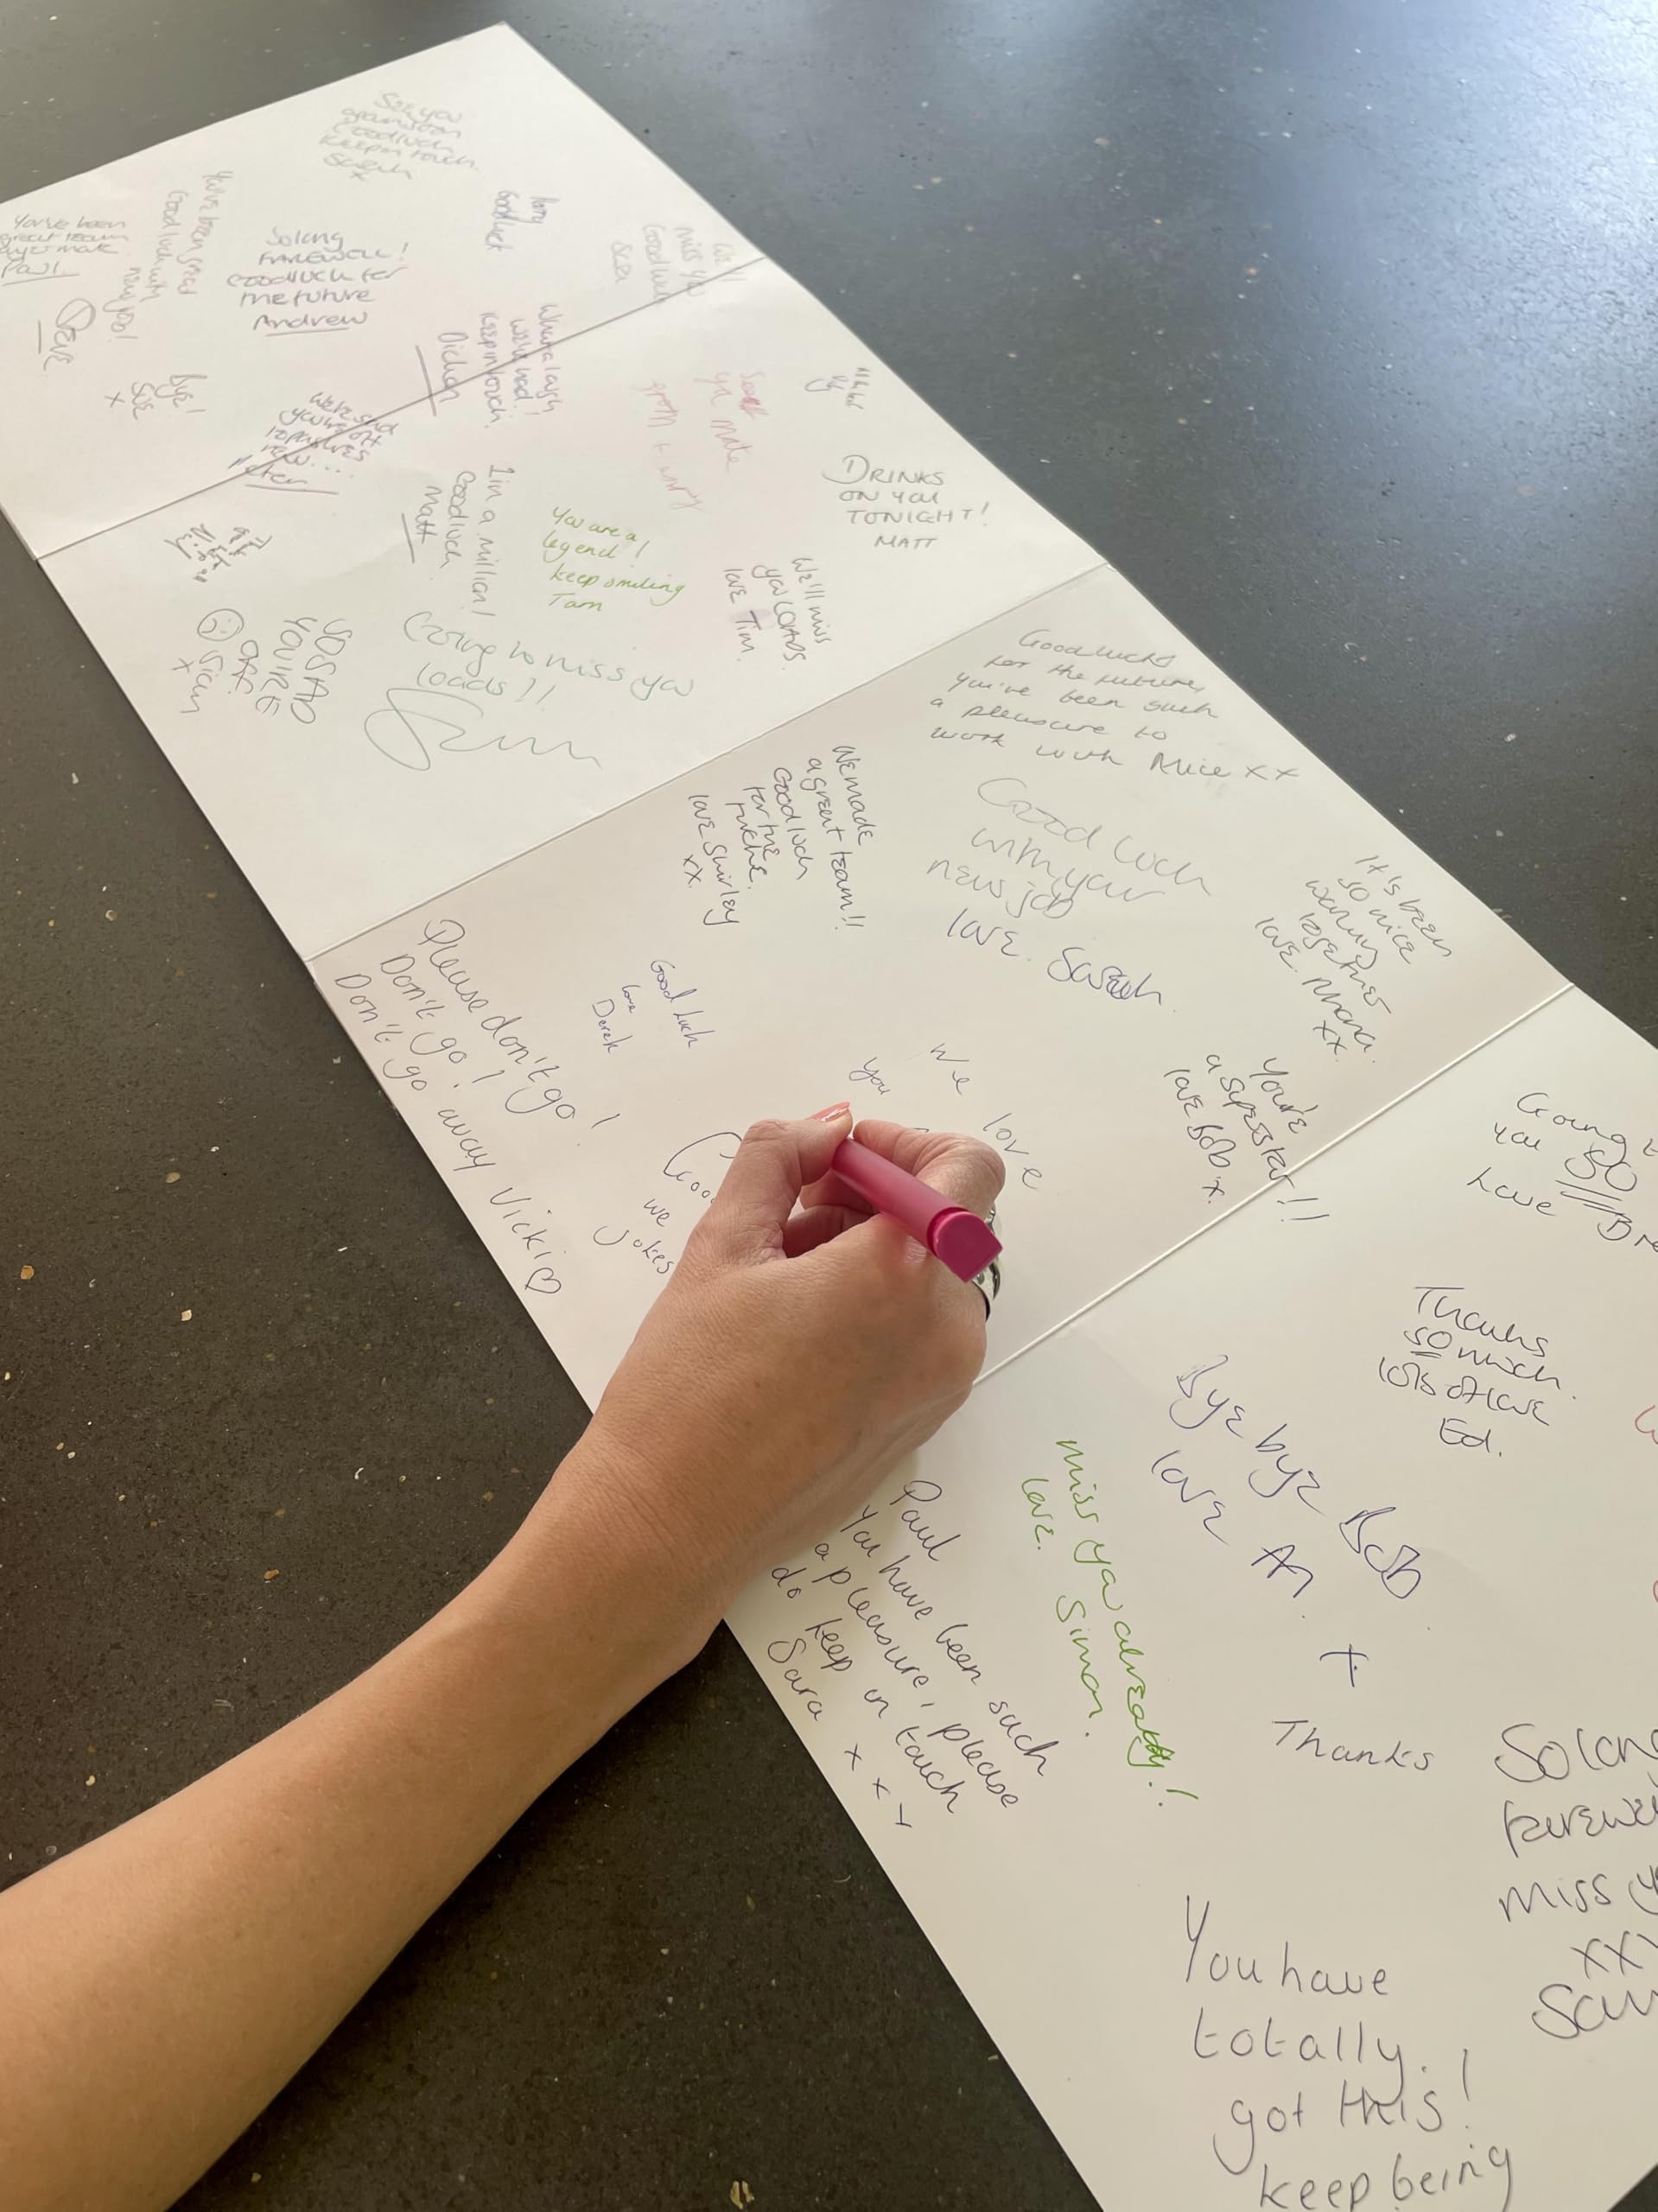 See you
Good luck
Keep in touch
Sarah
x
You've been
great team
mate
Paul
You've been great
Good luck with
new job!
Steve
So long
FAREWELL!
Good luck for
the future
Andrew
Good luck
We'll
miss you
Good luck
What a laugh
we've had!
Keep in touch
Bye!
Sue
x
We're sad
you're off
to pastures
new....
you mate
DRINKS
ON YOU
TONIGHT!
MATT
1 in a million!
Good luck
Matt
You are a
legend!
keep smiling
Tam
We'll miss
you LOADS.
love Tim.
SO SAD
YOU'RE
OFF
x
Going to miss you
loads!!
Good luck
for the future,
you've been such
a pleasure to
work with Alice xx
We made
a great team!!
Good luck
for the
future.
love Shirley
xx.
Good luck
with your
new job
love. Sarah
It's been
so nice
working
together
love. Rhona.
xx.
Please don't go!
Don't go!
Don't go away Vicki ♡
Good luck
love
Derek
We love
you
You're
a superstar!!
love Bob
x.
Good
we
jokes
Going
you SO
Love Bre
Thanks
so much.
lots of love
Ed.
Bye bye Bob
love Al.
+
Thanks
Miss ya already!
love. Simon.
Paul
You have been such
a pleasure, please
do keep in touch
Sara x x x
So long
farewe
miss y
xx
You have
totally.
got this!
keep being